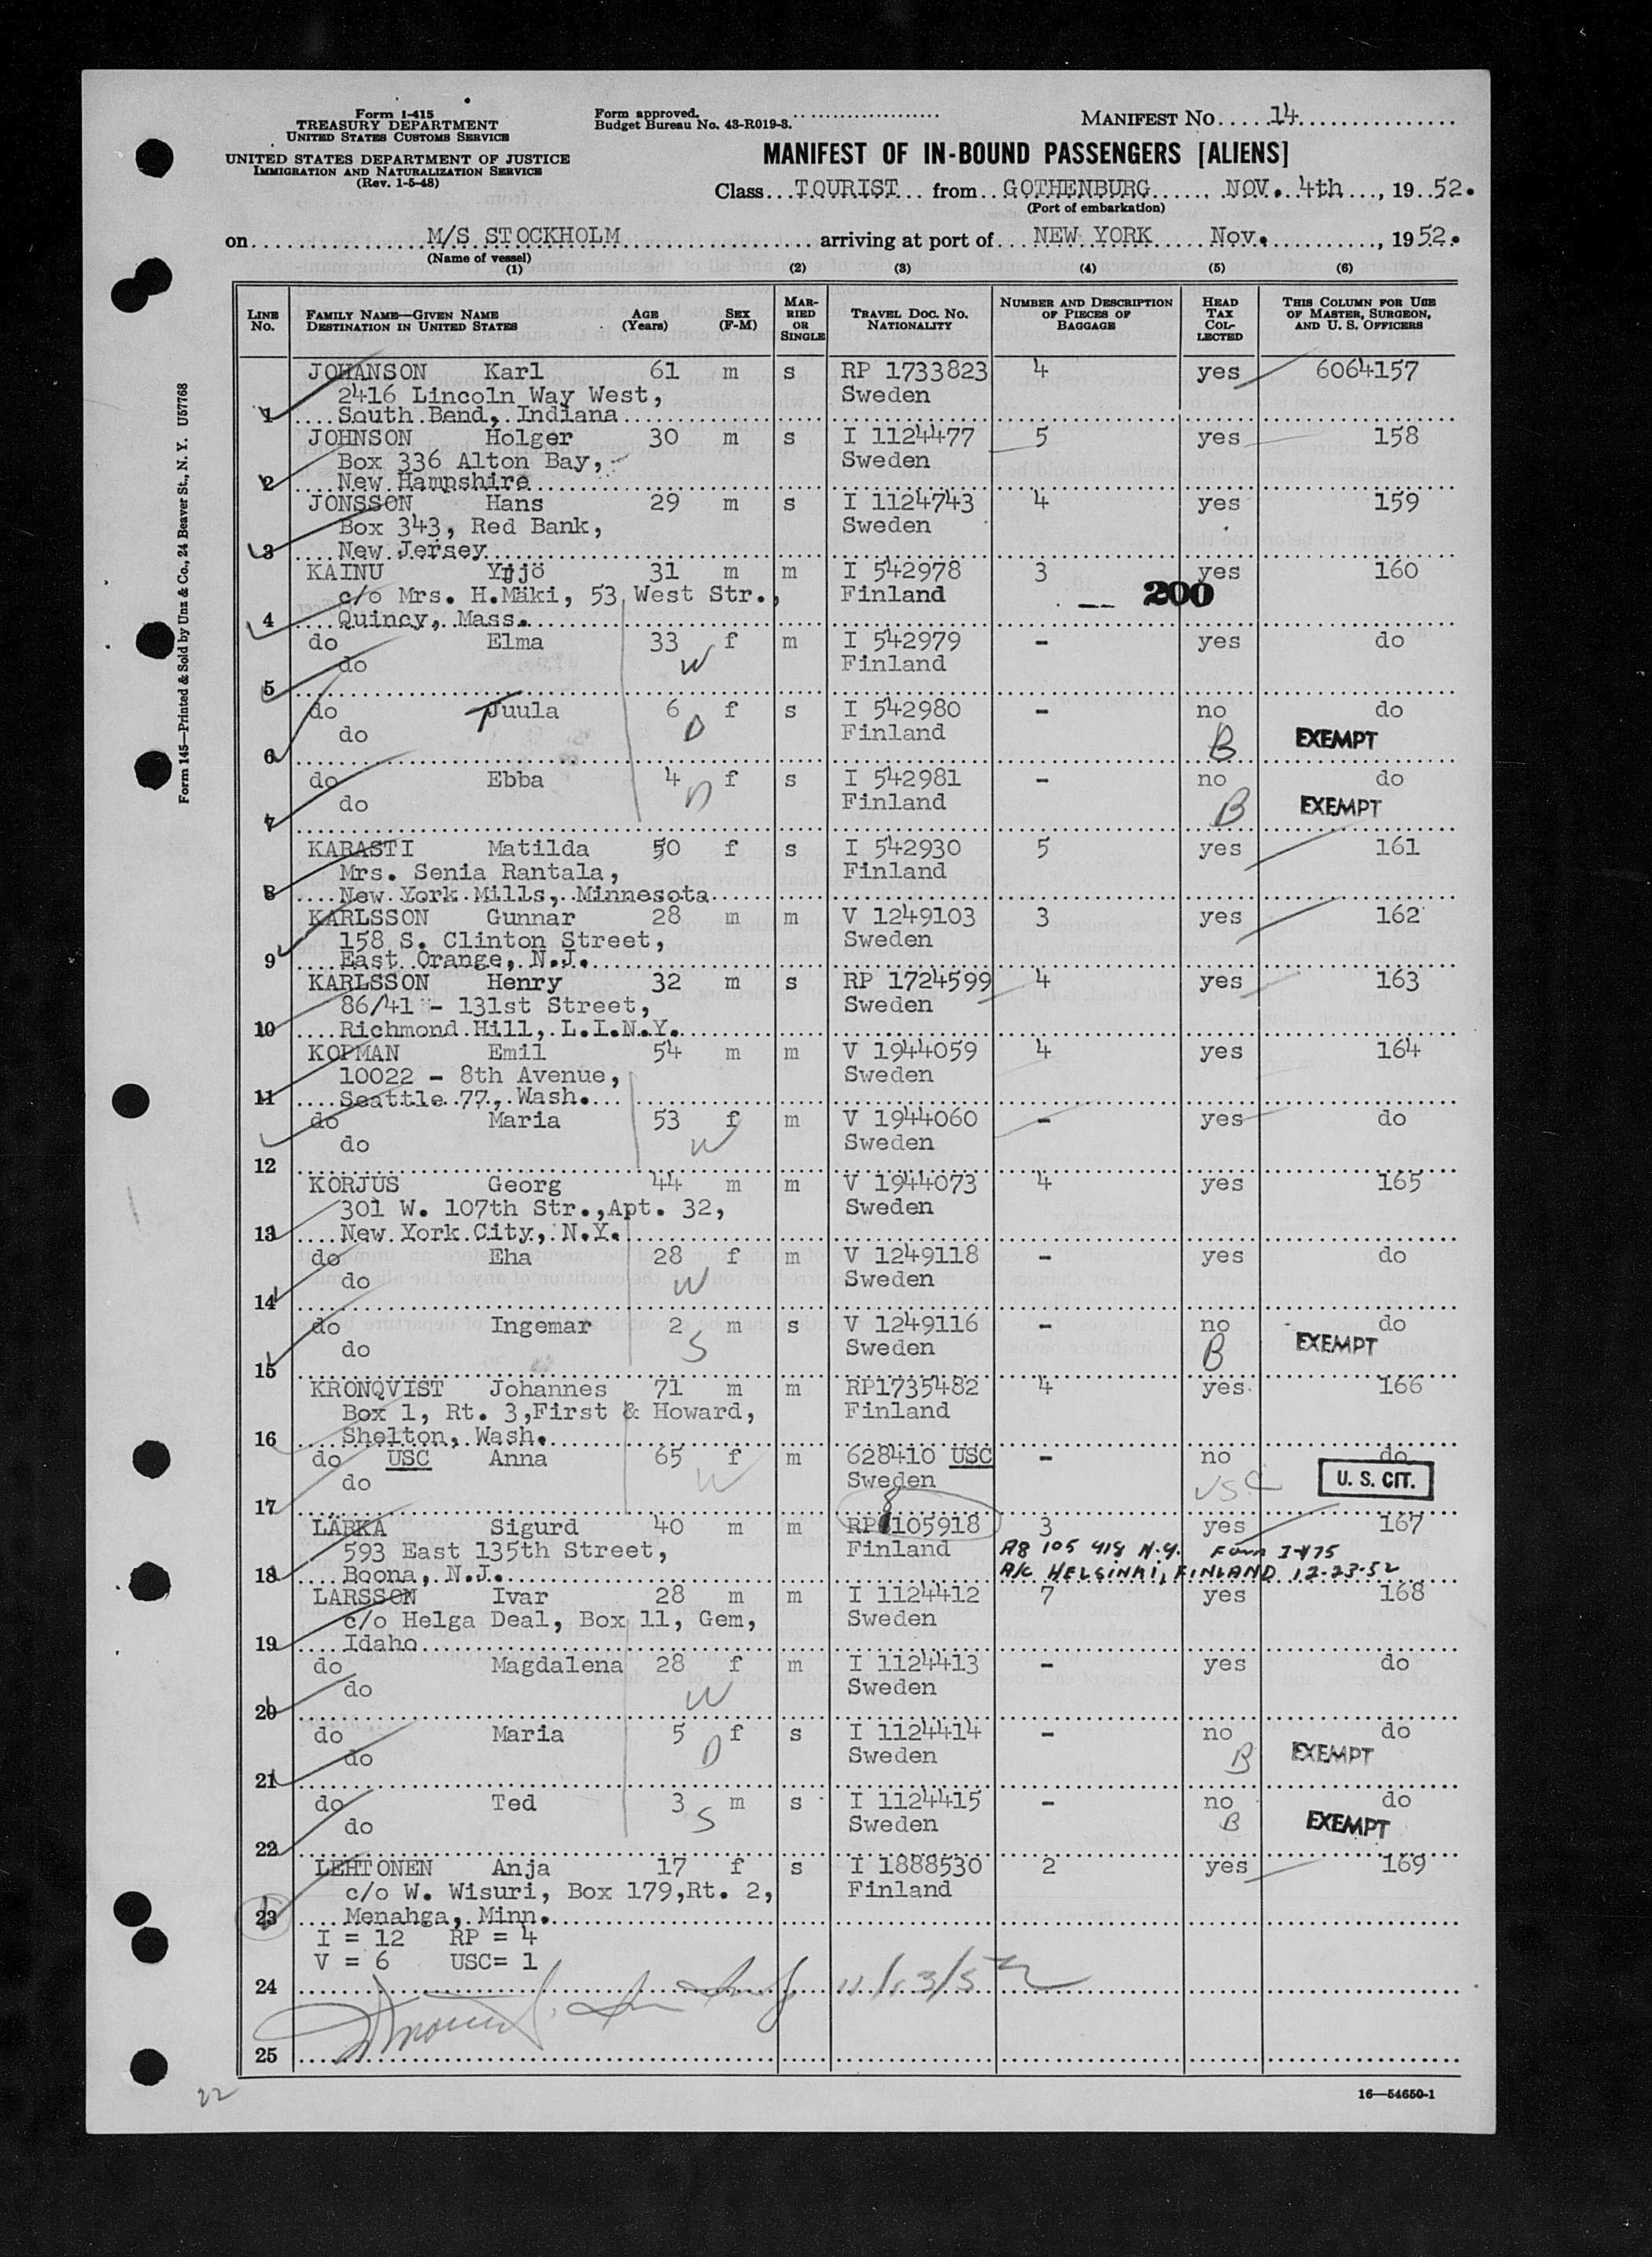 Form I-415
TREASURY DEPARTMENT
UNITED STATES CUSTOMS SERVICE
UNITED STATES DEPARTMENT OF JUSTICE
IMMIGRATION AND NATURALIZATION SERVICE
(Rev. 1-5-48)
Form approved.
Budget Bureau No. 43-R019-3.
MANIFEST NO. 14
MANIFEST OF IN-BOUND PASSENGERS [ALIENS]
Class TOURIST from GOTHENBURG, NOV. 4th, 1952.
(Port of embarkation)
on M/S STOCKHOLM arriving at port of NEW YORK Nov. , 1952.
(Name of vessel)
(1) (2) (3) (4) (5) (6)
LINE No. FAMILY NAME—GIVEN NAME DESTINATION IN UNITED STATES AGE (Years) SEX (F-M) MARRIED OR SINGLE TRAVEL DOC. NO. NATIONALITY NUMBER AND DESCRIPTION OF PIECES OF BAGGAGE HEAD TAX COLLECTED THIS COLUMN FOR USE OF MASTER, SURGEON, AND U. S. OFFICERS
JOHANSON Karl 61 m s RP 1733823 4 yes 6064157
2416 Lincoln Way West, Sweden
1 South Bend, Indiana
JOHNSON Holger 30 m s I 1124477 5 yes 158
Box 336 Alton Bay, Sweden
2 New Hampshire
JONSSON Hans 29 m s I 1124743 4 yes 159
Box 343, Red Bank, Sweden
3 New Jersey
KAINU Yrjö 31 m m I 542978 3 yes 160
c/o Mrs. H.Mäki, 53 West Str., Finland 200
4 Quincy, Mass.
do Elma 33 f m I 542979 - yes do
do W Finland
5
do Juula 6 f s I 542980 - no do
do D Finland B EXEMPT
6
do Ebba 4 f s I 542981 - no do
do D Finland B EXEMPT
7
KARASTI Matilda 50 f s I 542930 5 yes 161
Mrs. Senia Rantala, Finland
8 New York Mills, Minnesota
KARLSSON Gunnar 28 m m V 1249103 3 yes 162
158 S. Clinton Street, Sweden
9 East Orange, N.J.
KARLSSON Henry 32 m s RP 1724599 4 yes 163
86/41 - 131st Street, Sweden
10 Richmond Hill, L.I.N.Y.
KOPMAN Emil 54 m m V 1944059 4 yes 164
10022 - 8th Avenue, Sweden
11 Seattle 77, Wash.
do Maria 53 f m V 1944060 - yes do
do W Sweden
12
KORJUS Georg 44 m m V 1944073 4 yes 165
301 W. 107th Str.,Apt. 32, Sweden
13 New York City, N.Y.
do Eha 28 f m V 1249118 - yes do
do W Sweden
14
do Ingemar 2 m s V 1249116 - no do
do S Sweden B EXEMPT
15
KRONQVIST Johannes 71 m m RP1735482 4 yes 166
Box 1, Rt. 3,First & Howard, Finland
16 Shelton, Wash.
do USC Anna 65 f m 628410 USC - no do
do W Sweden USC U. S. CIT.
17
LÄRKA Sigurd 40 m m RP 8105918 3 yes 167
593 East 135th Street, Finland A8 105 918 N.Y. Form I-175
18 Boona, N.J. A/C HELSINKI, FINLAND 12-23-52
LARSSON Ivar 28 m m I 1124412 7 yes 168
c/o Helga Deal, Box 11, Gem, Sweden
19 Idaho
do Magdalena 28 f m I 1124413 - yes do
do W Sweden
20
do Maria 5 f s I 1124414 - no do
do D Sweden B EXEMPT
21
do Ted 3 m s I 1124415 - no do
do S Sweden B EXEMPT
22
LEHTONEN Anja 17 f s I 1888530 2 yes 169
c/o W. Wisuri, Box 179,Rt. 2, Finland
23 Menahga, Minn.
I = 12 RP = 4
V = 6 USC= 1
24 11/13/52
25
22
16—54650-1
Form 145—Printed & Sold by Unz & Co., 24 Beaver St., N. Y. U57768